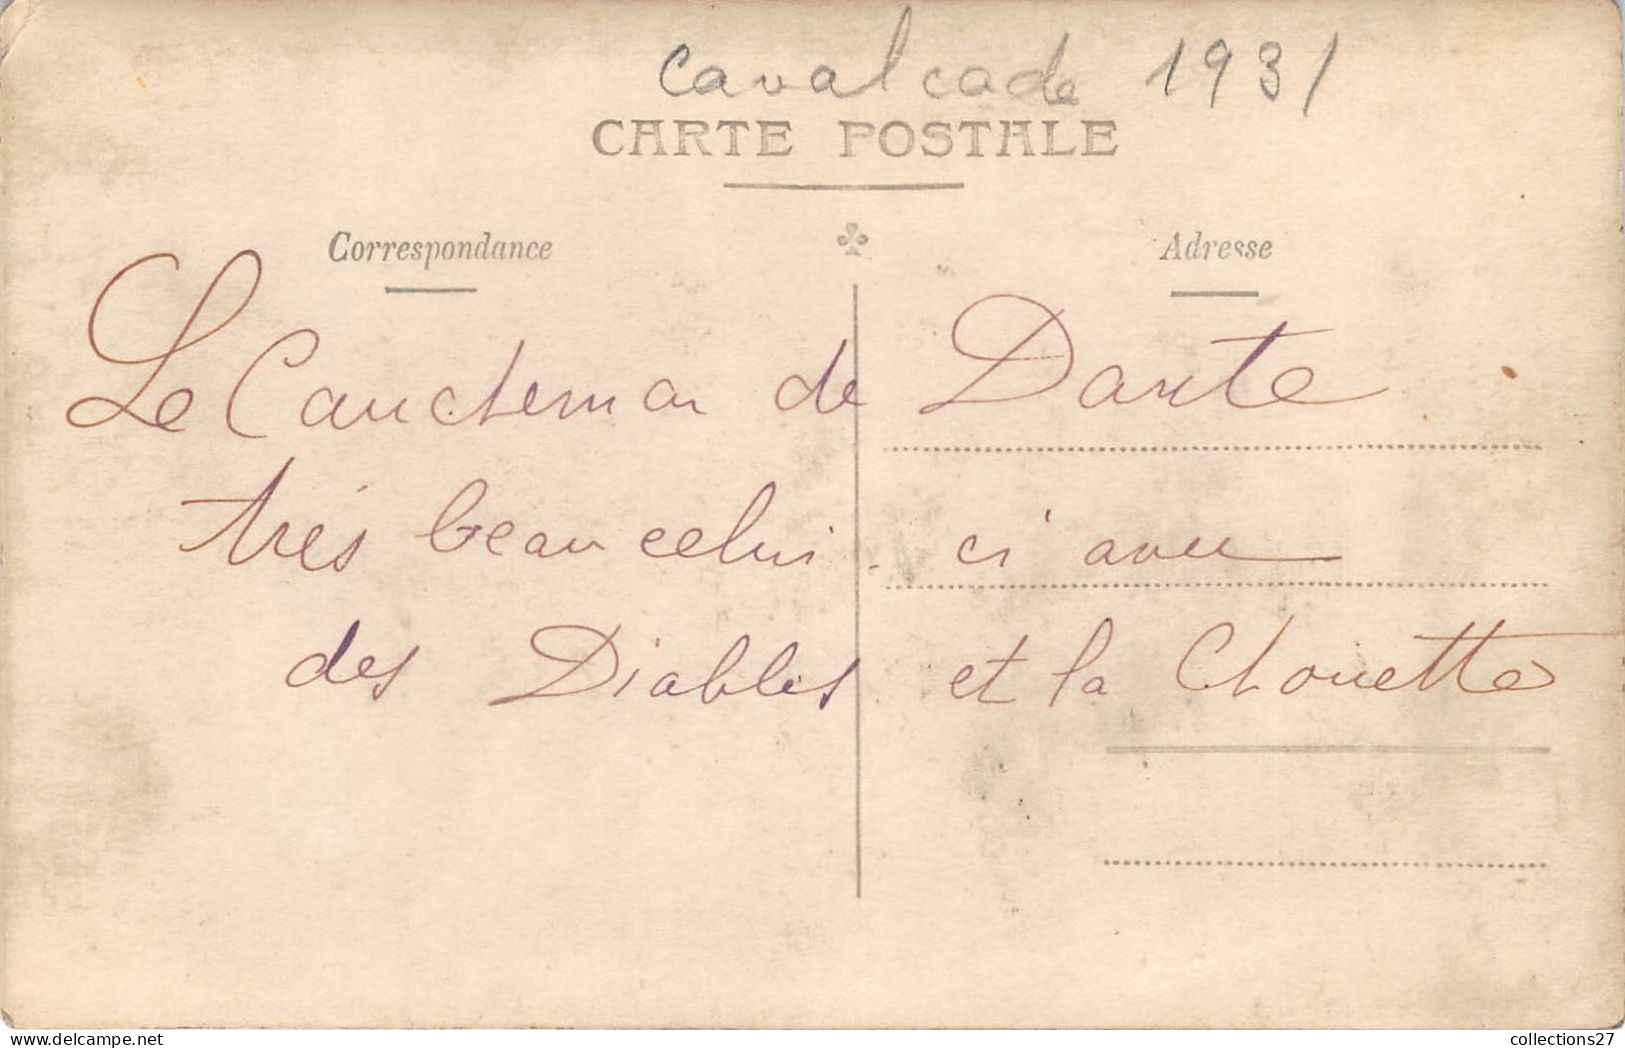 Cavalcade 1931
CARTE POSTALE
Correspondance
Adresse
Le Cauchemar de Dante
très beau celui-ci avec
des Diables et la Chouette
delcampe.net
collections27